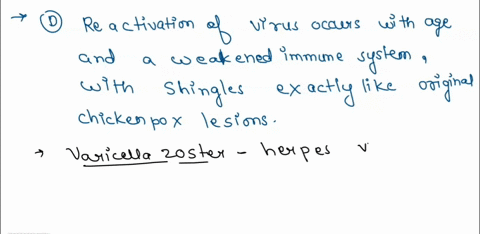 → (D) Reactivation of virus occurs with age
and a weakened immune system,
with Shingles exactly like original
chickenpox lesions.
→ Varicella zoster - herpes v